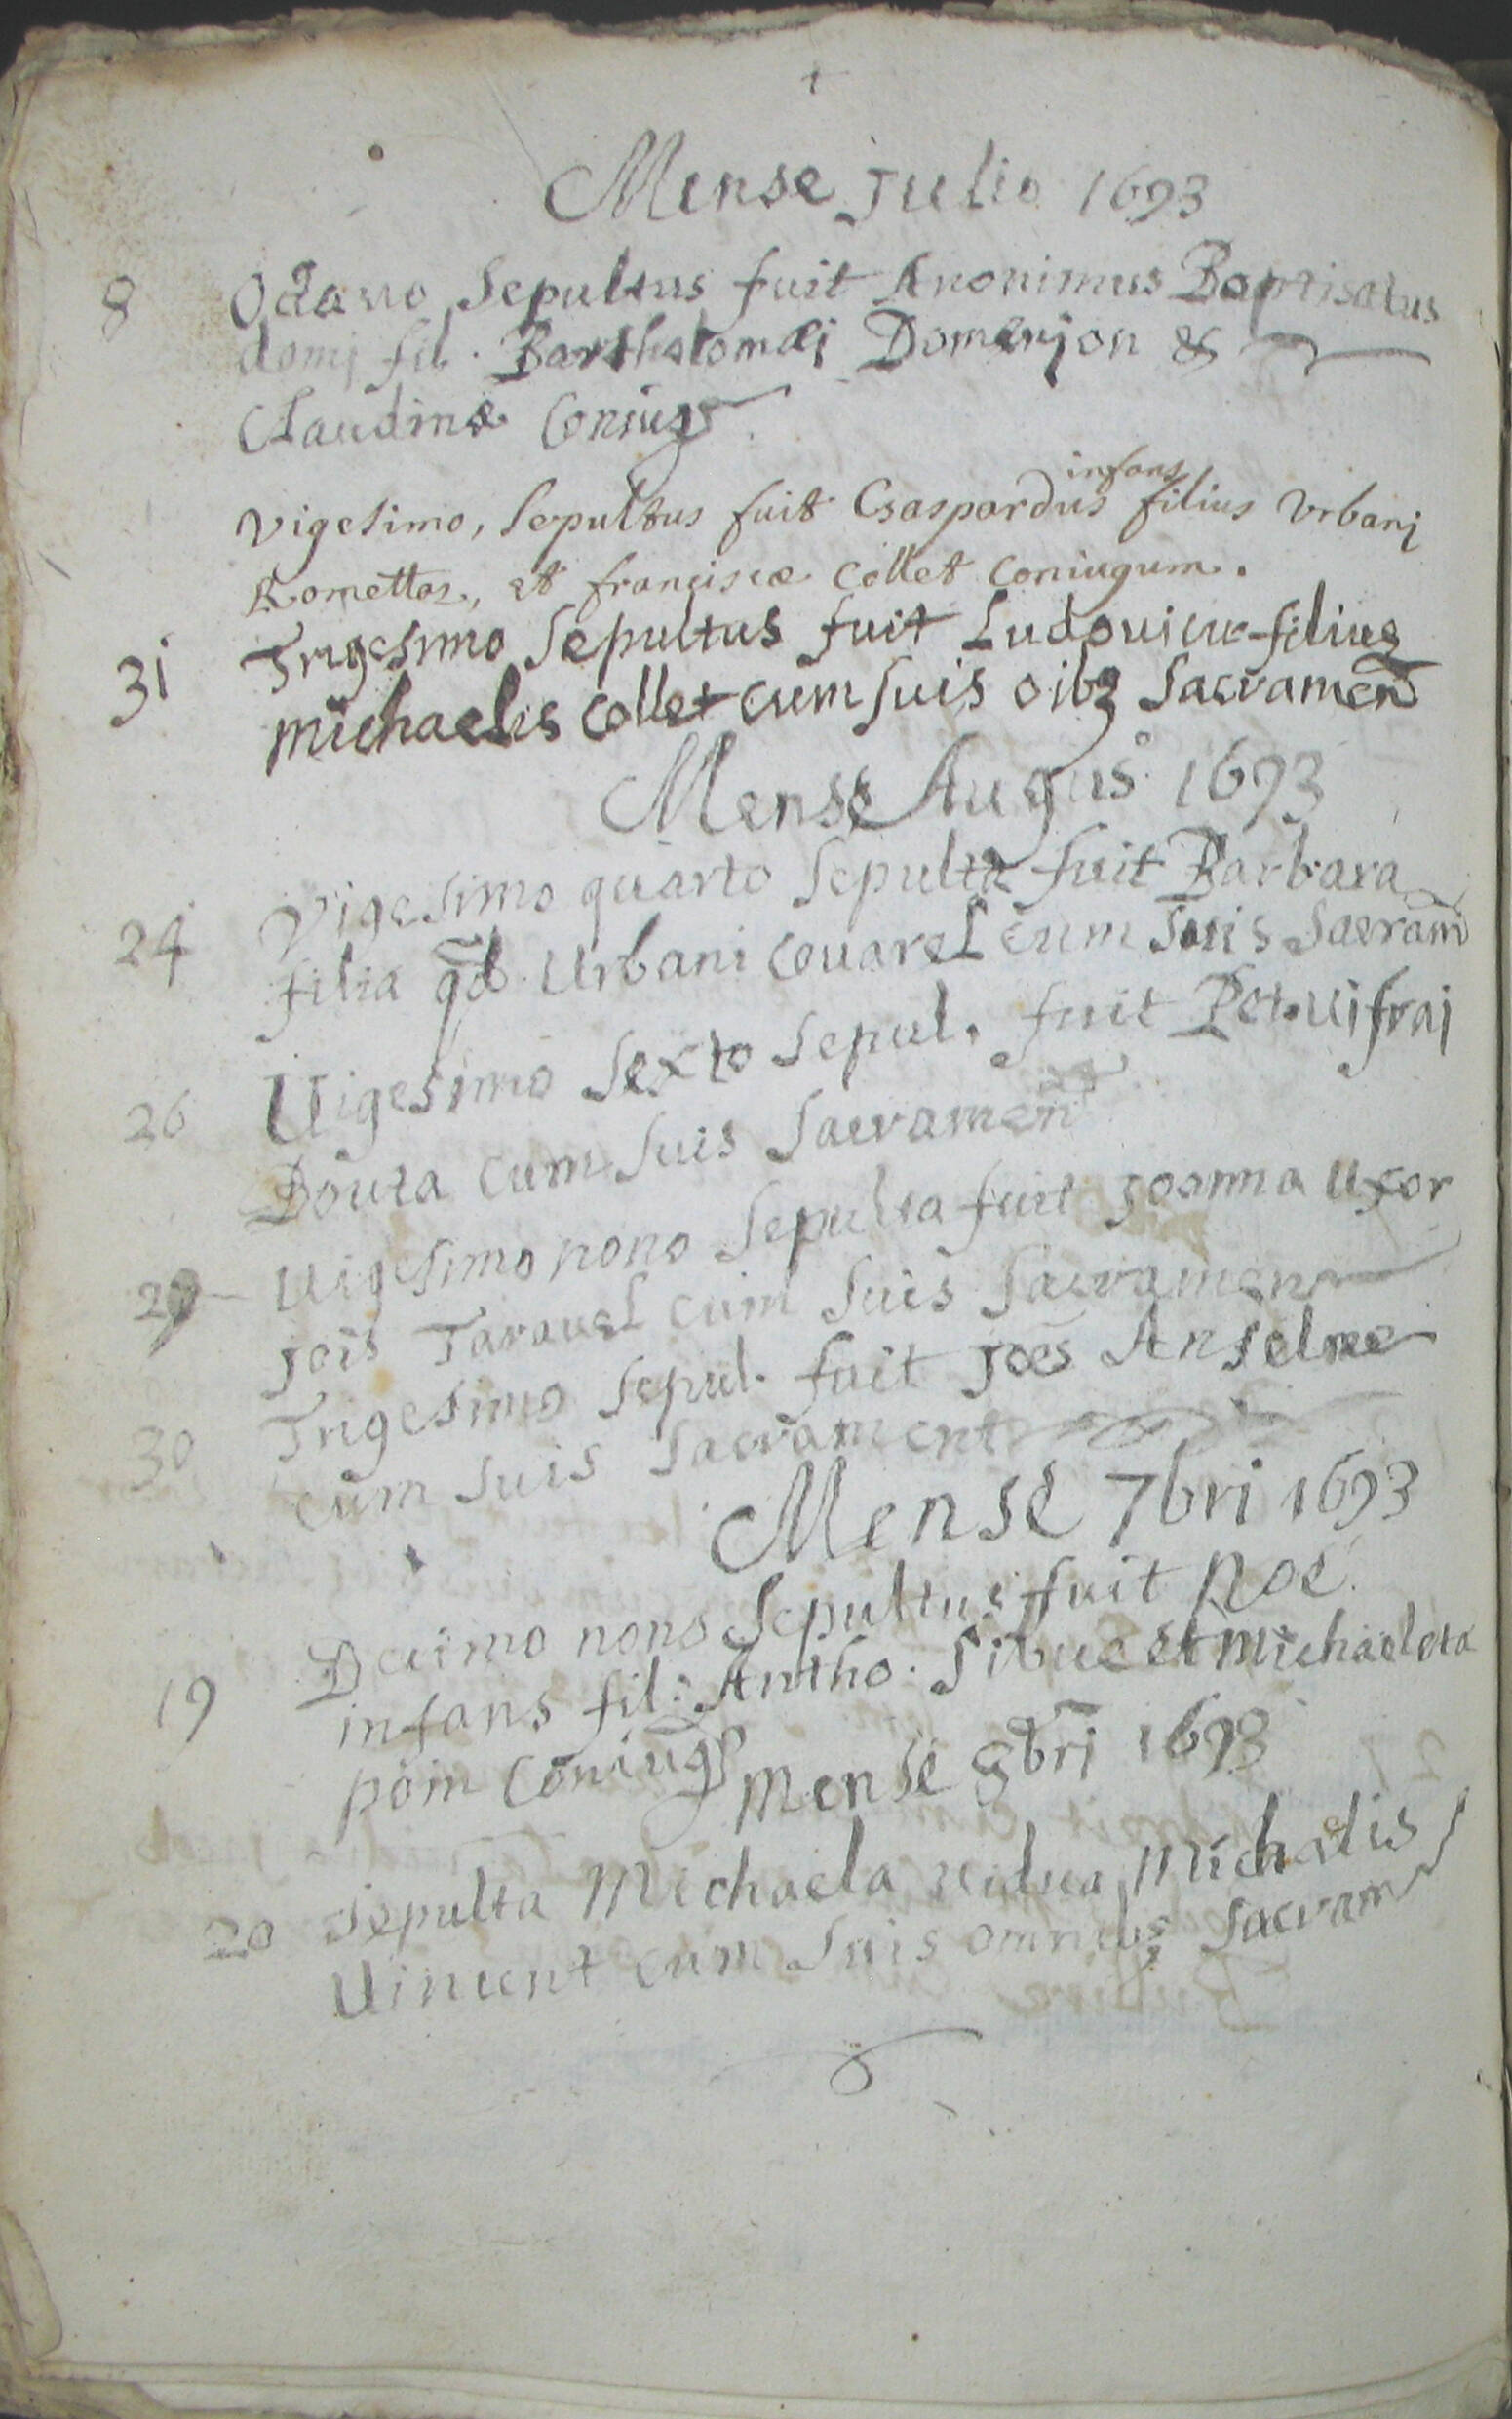 Mense Julio 1693
8 Octavo Sepultus fuit Anonimus Baptisatus
domj fil. Bartholomæj Domenjon &
Claudinæ Coniug
infans
vigesimo, Sepultus fuit Gaspardus filius Vrbanj
Romettaz, et franciscæ Collet Coniugum.
31 Trigesimo Sepultus fuit Ludouicus filius
michaelis Collet cum suis oibz Sacramen
Mense Augus° 1693
24 Vigesimo quarto Sepulta fuit Barbara
filia qd Urbani Couarel cum suis Sacram
26 Uigesimo Sexto Sepul. fuit Pet.
Douta Cum Suis Sacramen
29 Uigesimo nono Sepulta fuit Joanna Uxor
Jois Tarauel cum Suis Sacramen
30 Trigesimo Sepul. fuit Joes Anselme
cum Suis Sacrament
Mense 7bri 1693
19 Decimo nono Sepultus fuit Noe
infans fil: Antho. Sibue et Michaeleta
Coniug
Mense 8bri 1693
20 Sepulta Michaela uidua Michaelis
Uincent cum Suis omnibz Sacram